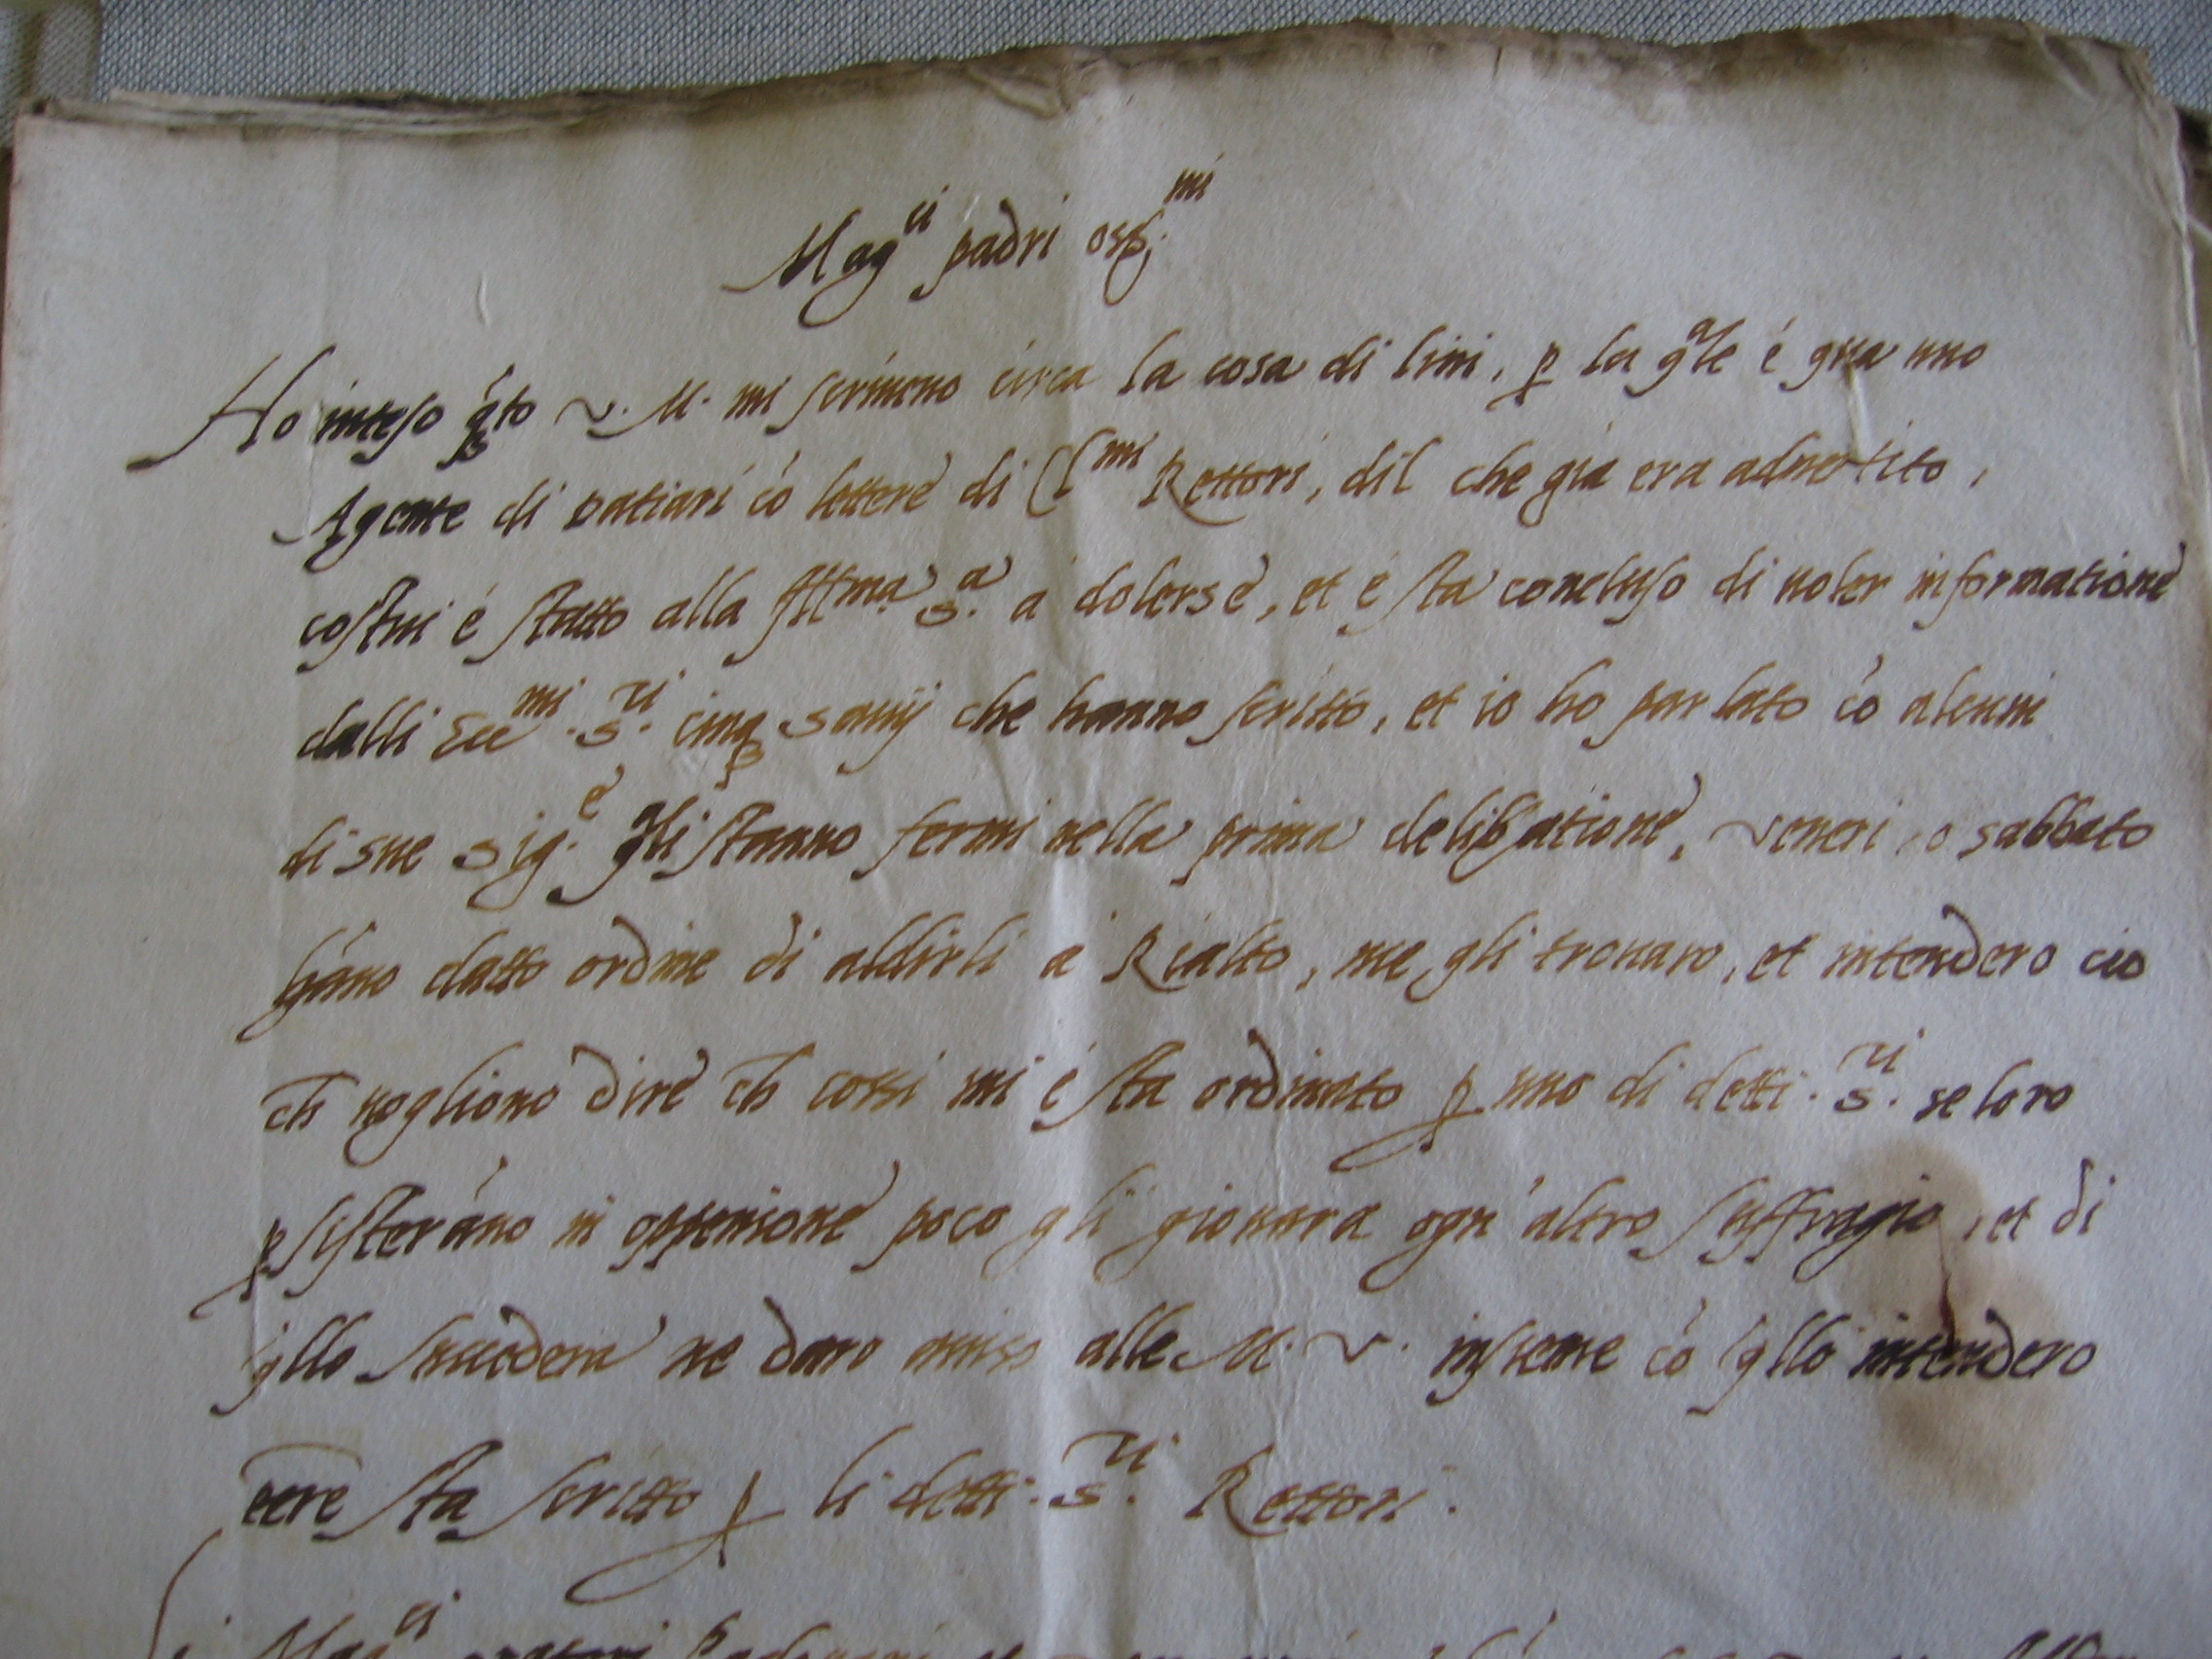 Mag^ci padri oss^mi
Ho inteso q̃to V. M. mi scriueno circa la cosa di lini, p la q^le é qua uno
Agente di datiari cõ lettere di Cl^mi Rettori, dil che già era aduertito,
costui é statto alla Ill^ma S.^a a dolerse, et é sta concluso di uoler informatione
dalli Ecc^mi S.^ri cinq sauij che hanno scritto, et io ho parlato cõ alcuni
di sue sig.^e q^li stanno fermi nella prima delibatione, Veneri o sabbato
hãno datto ordine di aldirli a Rialto, me gli trouaro, et intendero cio
ch uogliono dire ch cossi mi é sta ordinato p uno di detti S.^ri se loro
psisterãno in oppenione poco gli giouara ogn'altro suffragio, et di
q̃llo succedera ne daro auiso alle M. V. insieme cõ q̃llo intendero
eere sta scritto p li detti S.^ri Rettori.
Mag^ci oratori